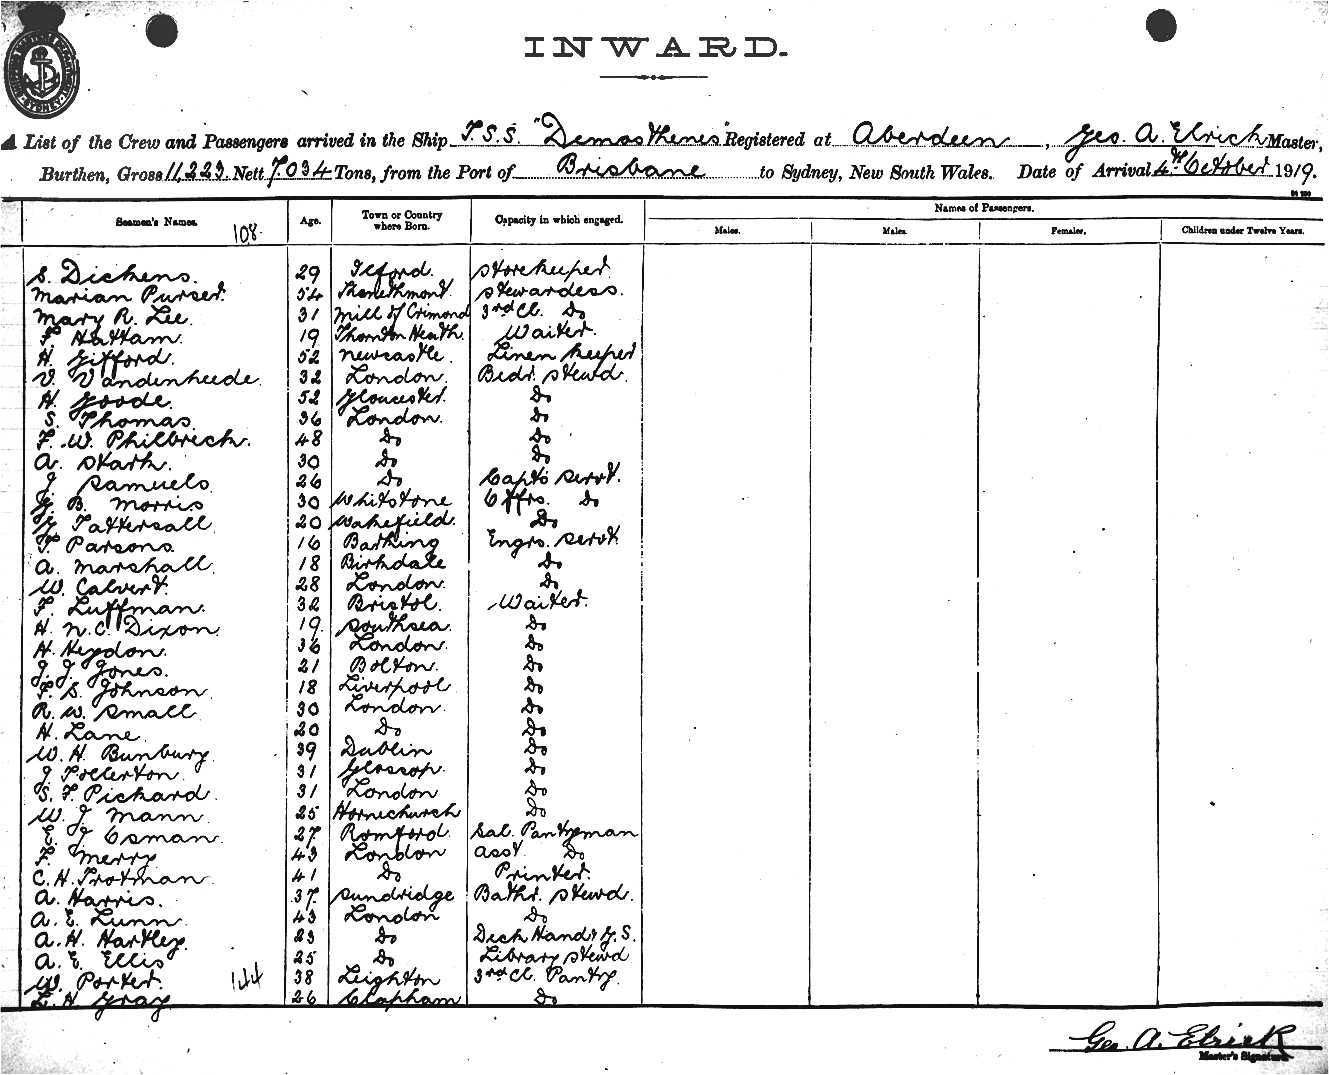 INWARD.
A List of the Crew and Passengers arrived in the Ship T.S.S. "Demosthenes" Registered at Aberdeen, Geo. A. Elrick Master,
Burthen, Gross 11,223. Nett 7034 Tons, from the Port of Brisbane to Sydney, New South Wales. Date of Arrival 4th October 1919.
Seamen's Names. 108. Age. Town or Country where Born. Capacity in which engaged. Names of Passengers.
Males. Males. Females. Children under Twelve Years.
S. Dickens. 29 Ilford. Storekeeper
Marian Purser. 54 Stewardess.
Mary R. Lee 31 Mill of Crimond 3rd Cl. Do
F. Hattam. 19 Thornton Heath. Waiter.
H. Gifford. 52 Newcastle. Linen keeper
V. Vandenheede. 32 London. Bedr. Stewd.
H. Goode. 52 Gloucester. Do
S. Thomas. 36 London. Do
F. W. Philbrick. 48 Do Do
A. Stark. 30 Do Do
J. Samuels. 26 Do Capts Servt.
G. B. Morris 30 Whitstone Offrs. Do
G. Tattersall 20 Wakefield. Do
T. Parsons. 16 Barking Engrs. Servt
A. Marshall. 18 Birkdale Do
W. Calvert. 28 London. Do
F. Luffman. 32 Bristol. Waiter.
H. N. C. Dixon. 19. Southsea. Do
H. Heydon. 36 London. Do
J. J. Jones. 21 Bolton. Do
F. S. Johnson 18 Liverpool Do
R. W. Small 30 London. Do
H. Lane. 20 Do Do
W. H. Bunbury 39 Dublin Do
J. Tollerton. 31 Glossop. Do
S. F. Pickard. 31 London Do
W. J Mann. 25 Hornchurch Do
E. J Osman. 27. Romford. Sal. Pantryman
F. Merry 43 London Asst. Do
C. H. Trotman. 41 Do Printer.
A. Harris. 37. Sundridge Bathr. Stewd.
A. E. Lunn. 43 London Do
A. H. Hartley. 23 Do Deck Hand & G. S.
A. E. Ellis 25 Do Library Stewd
W. Porter. 144 38 Leighton 3rd Cl. Pantry.
L. H. Gray 26 Clapham Do
Geo. A. Elrick
Master's Signature